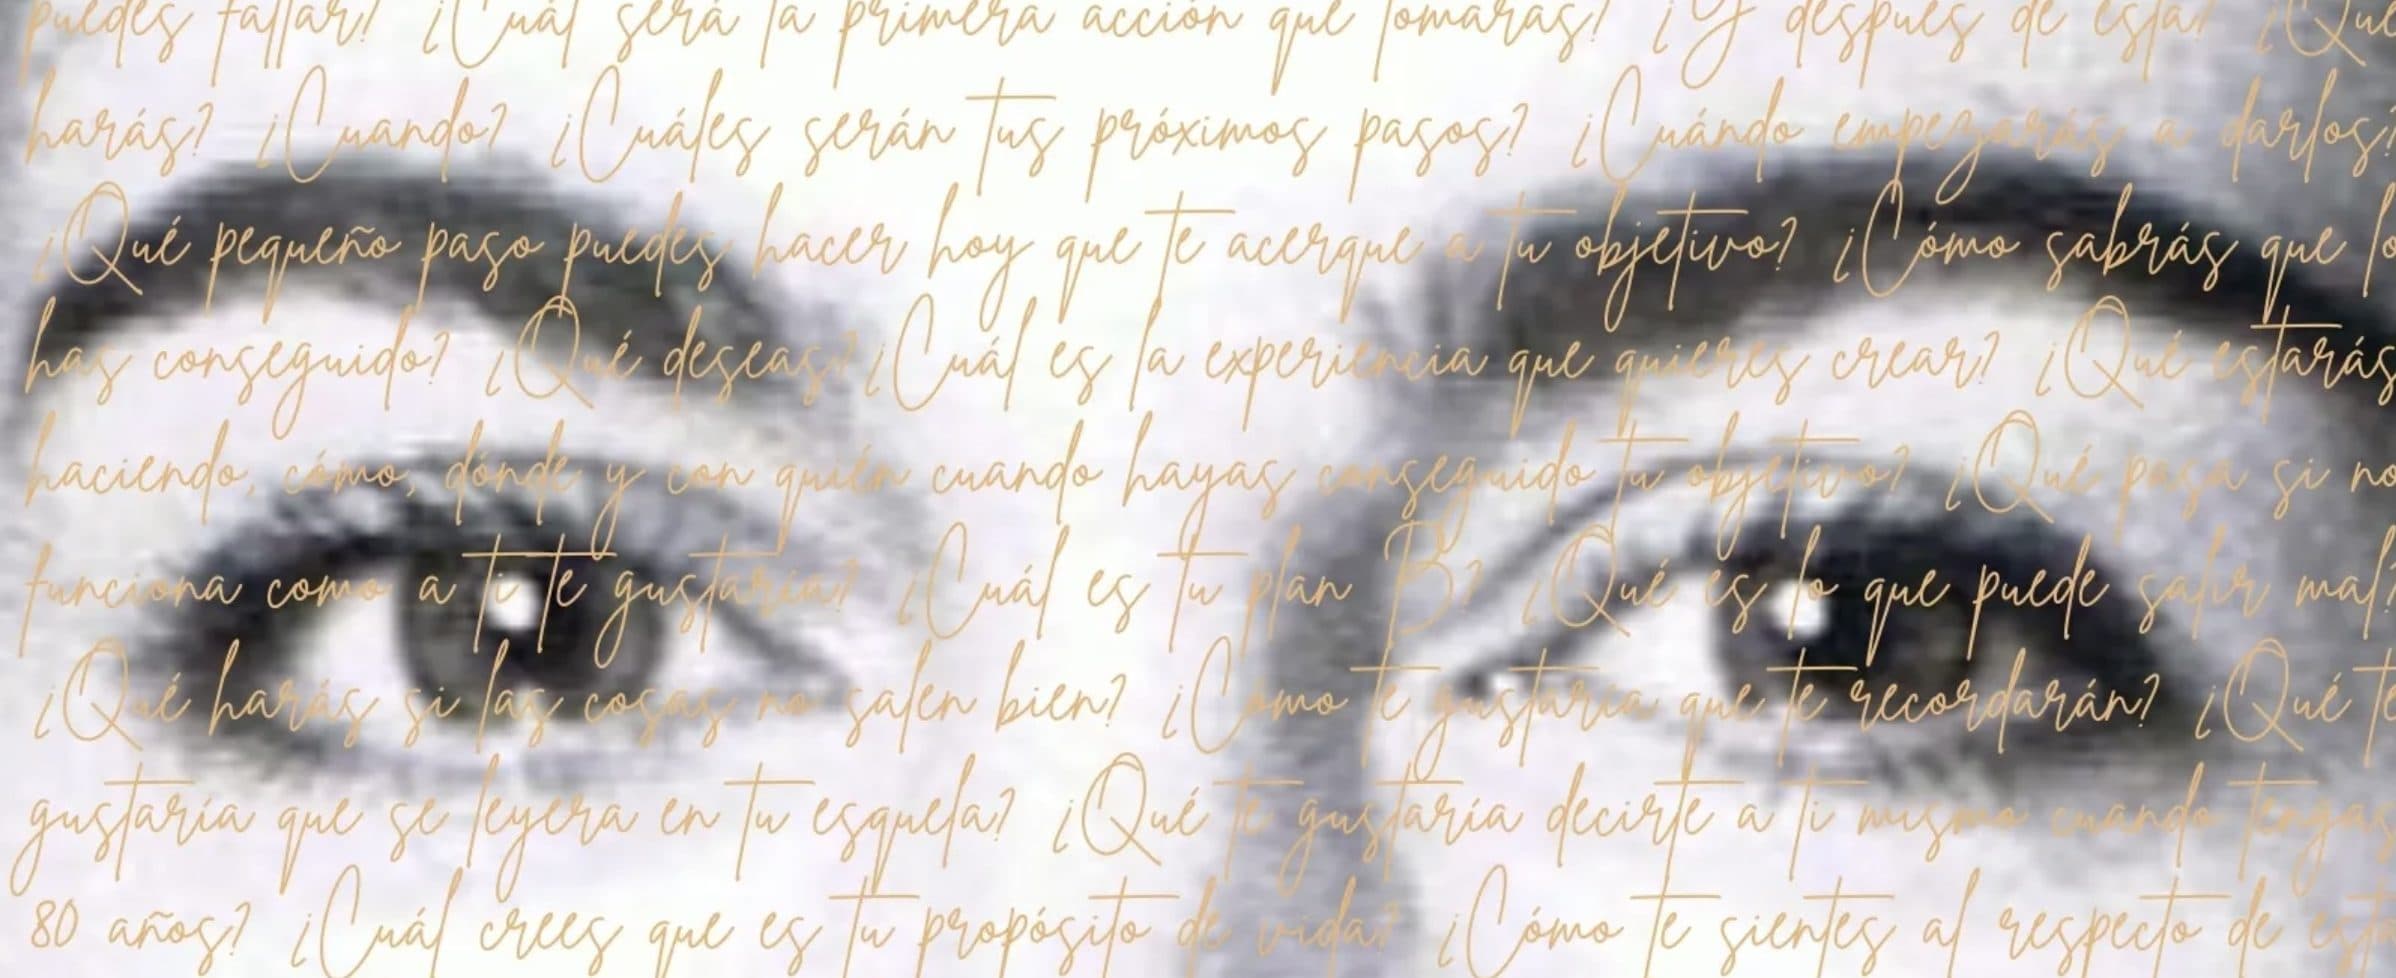 puedes fallar? ¿Cuál será la primera acción que tomarás? ¿Y después de esta? ¿Qué
harás? ¿Cuando? ¿Cuáles serán tus próximos pasos? ¿Cuándo empezarás a darlos?
¿Qué pequeño paso puedes hacer hoy que te acerque a tu objetivo? ¿Cómo sabrás que lo
has conseguido? ¿Qué deseas? ¿Cuál es la experiencia que quieres crear? ¿Qué estarás
haciendo, cómo, dónde y con quién cuando hayas conseguido tu objetivo? ¿Qué pasa si no
funciona como a ti te gustaría? ¿Cuál es tu plan B? ¿Qué es lo que puede salir mal?
¿Qué harás si las cosas no salen bien? ¿Cómo te gustaría que te recordarán? ¿Qué te
gustaría que se leyera en tu esquela? ¿Qué te gustaría decirte a ti mismo cuando tengas
80 años? ¿Cuál crees que es tu propósito de vida? ¿Cómo te sientes al respecto de esta